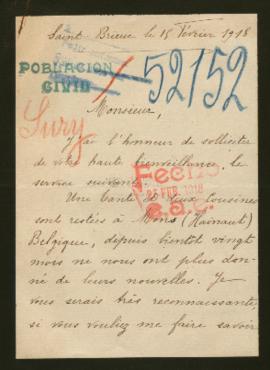 Saint-Brieuc le 15 Février 1918
POBLACION
CIVIL
52152
Monsieur,
Sury
J'ai l'honneur de solliciter
de votre haute bienveillance, le
service suivant.
Fecho
FEB. 1918
Une tante et deux cousines
sont restées à Mons (Hainaut)
Belgique, depuis bientôt vingt
mois ne nous ont plus don-
né de leurs nouvelles. Je
vous serais très reconnaissante
si vous vouliez me faire savoir